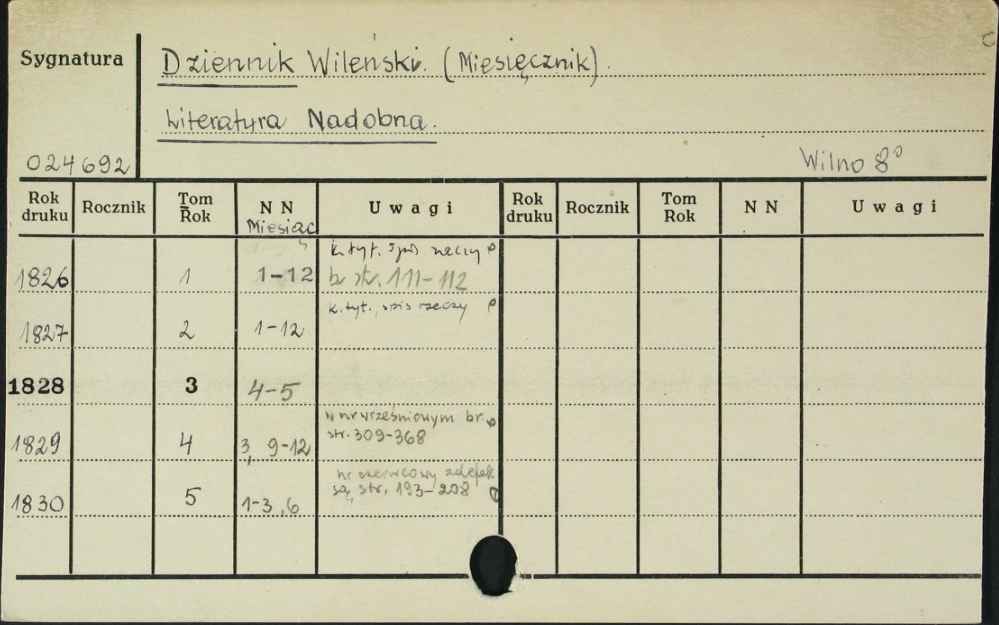 Sygnatura
Dziennik Wileński. (Miesięcznik).
Literatura Nadobna.
024692
Wilno 8°
Rok druku Rocznik Tom Rok NN Uwagi Rok druku Rocznik Tom Rok NN Uwagi
Miesiąc
k. tyt. spis rzeczy
1826 1 1-12 br str. 111-112
k. tyt., spis rzeczy
1827 2 1-12
1828 3 4-5
w nr wrześniowym br.
1829 4 3, 9-12 str. 309-368
nr czerwcowy zdefek
1830 5 1-3, 6 są, str. 193-208